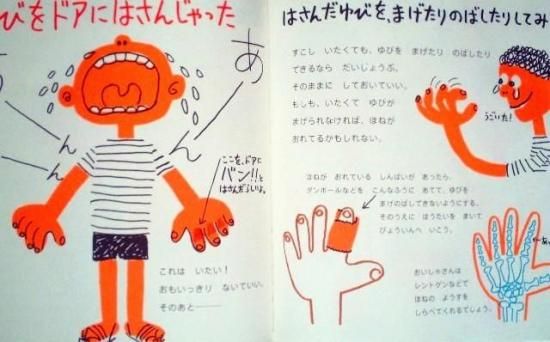 びをドアにはさんじゃった
あ
ん
ん
ん
ここを、ドアに
バン!!と
はさんだらしいよ。
これは いたい!
おもいっきり ないていい。
そのあと――
はさんだゆびを、まげたりのばしたりしてみ
すこし いたくても、ゆびを まげたり のばしたり
できるなら だいじょうぶ。
そのままに しておいていい。
もしも、いたくて ゆびが
まげられなければ、ほねが
おれてるかもしれない。
うごいた!
ほねが おれている しんぱいが あったら、
ダンボールなどを こんなふうに あてて、ゆびを
まげのばしできないようにする。
そのうえに ほうたいを まいて
びょういんへ いこう。
おいしゃさんは
レントゲンなどで
ほねの ようすを
しらべてくれるでしょう。